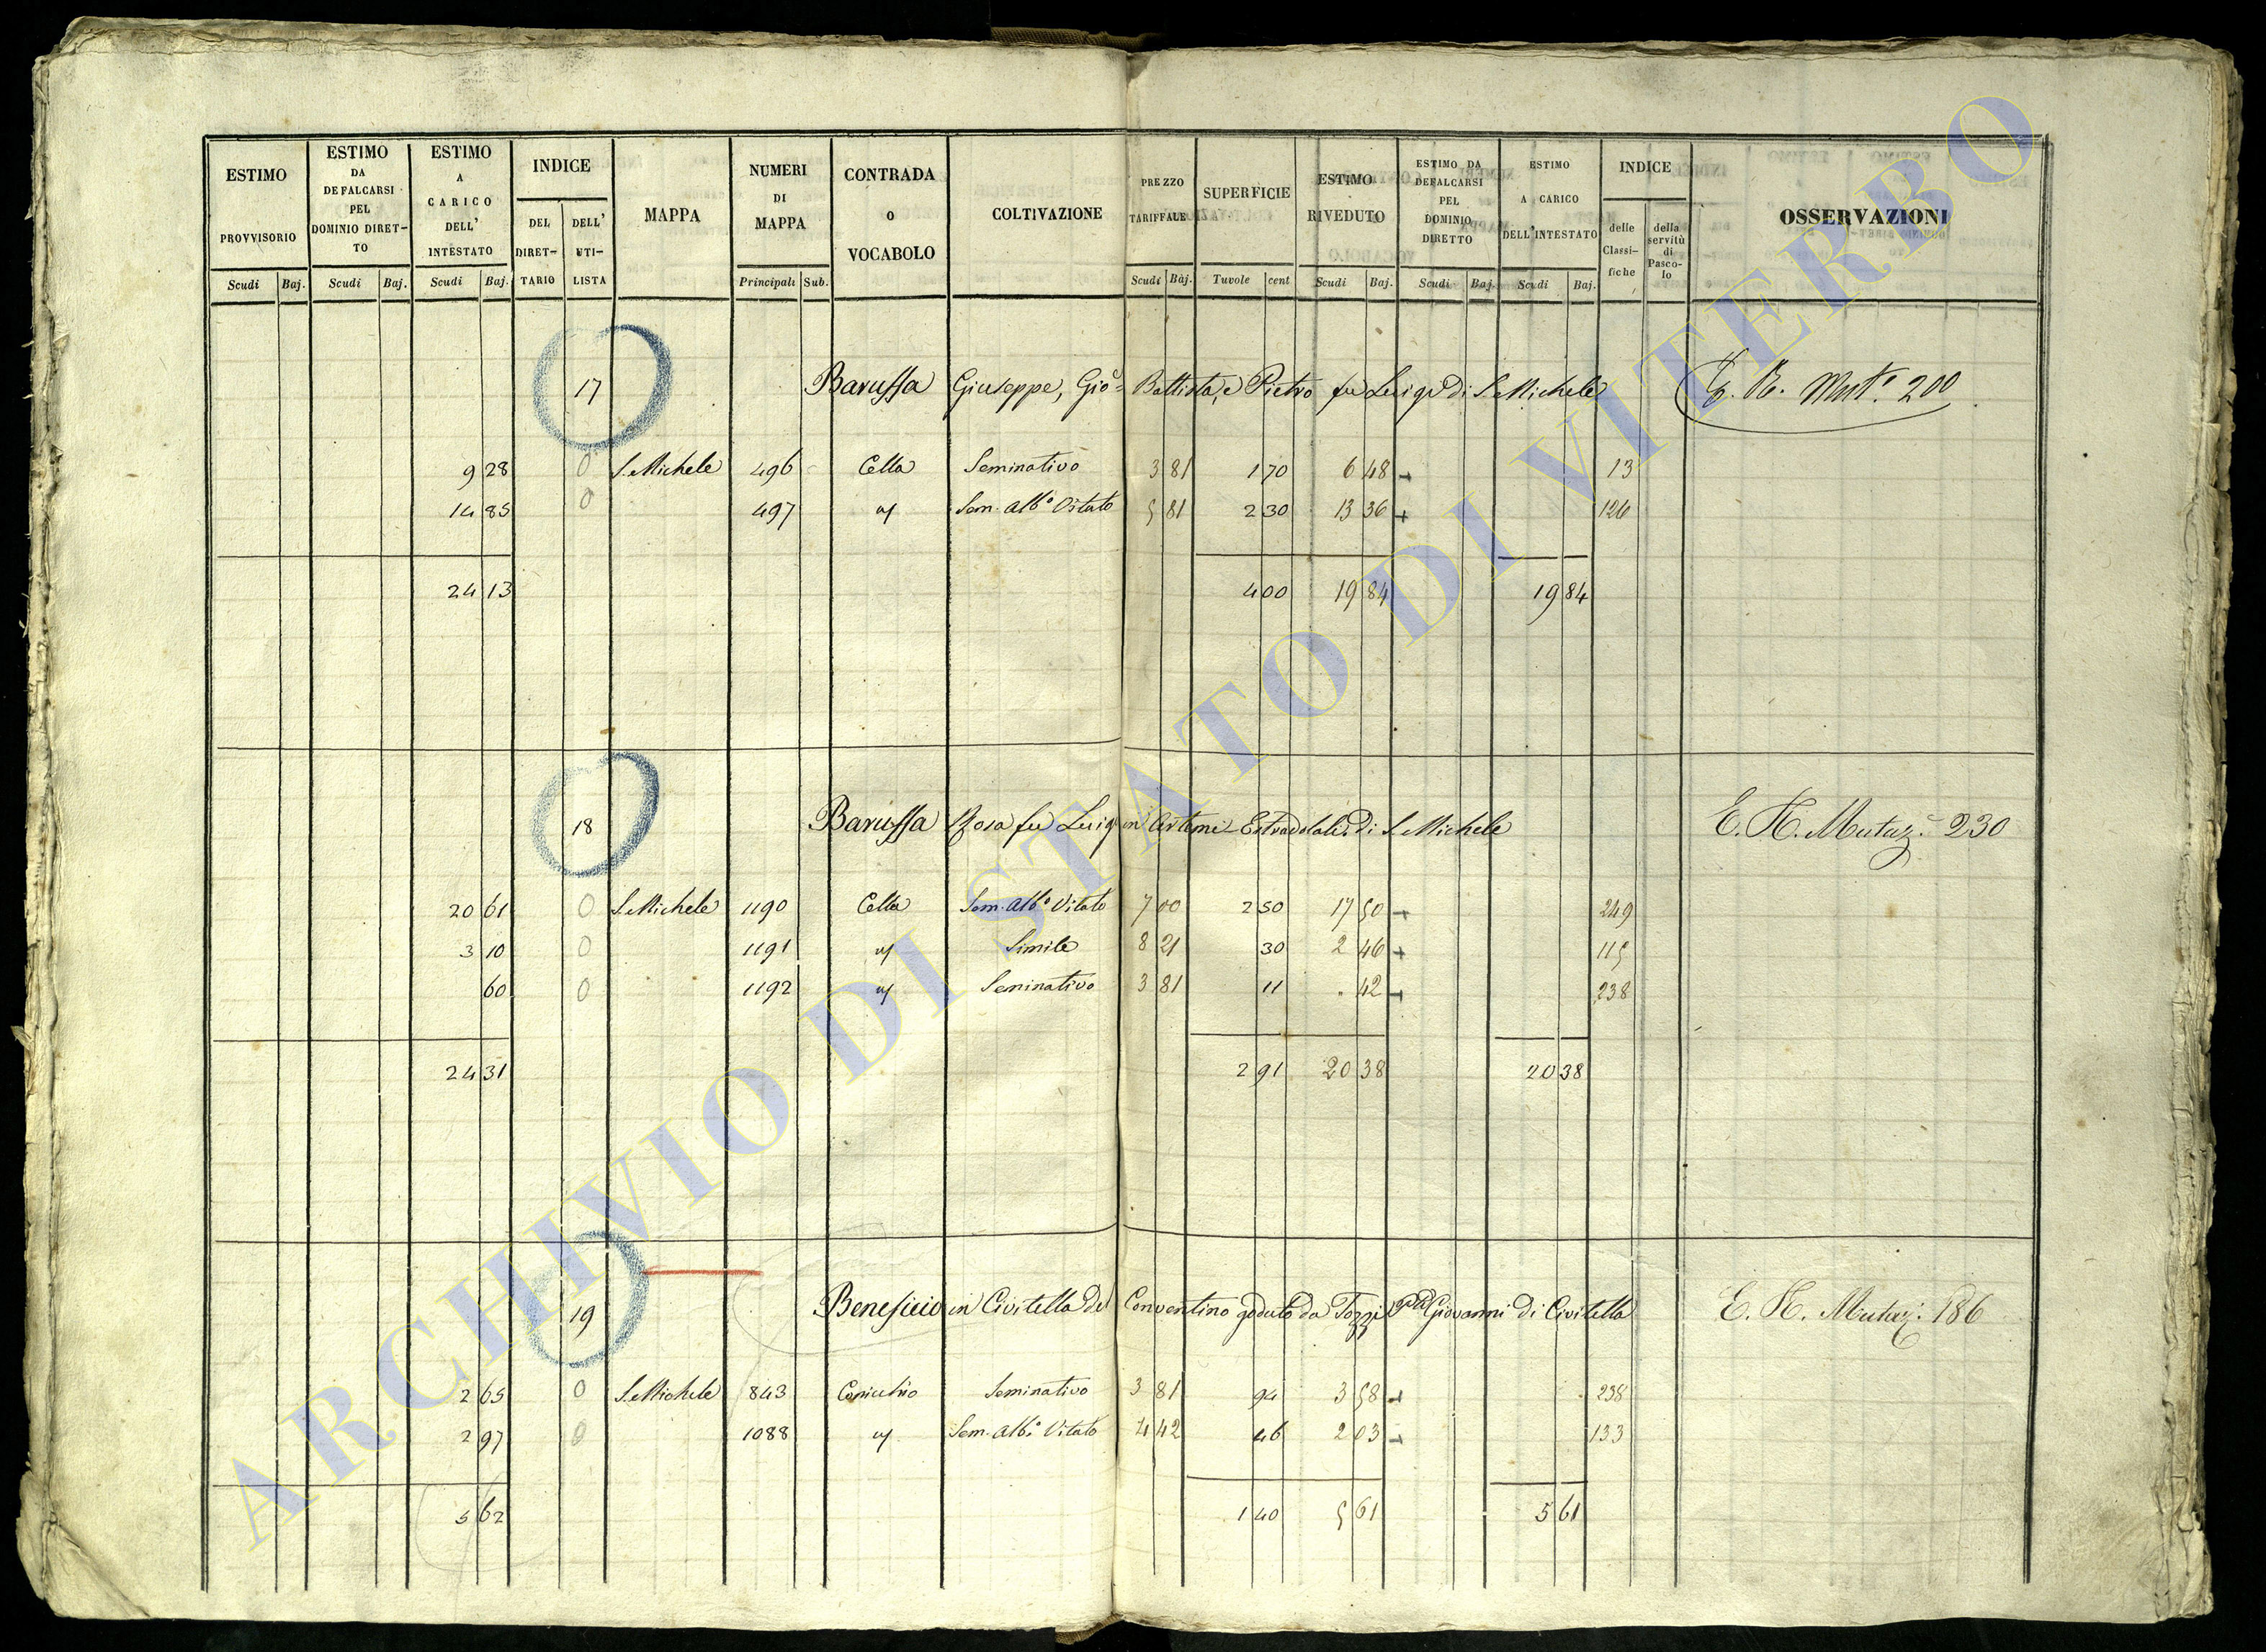 ESTIMO PROVVISORIO
ESTIMO DA DEFALCARSI PEL DOMINIO DIRET- TO
ESTIMO A CARICO DELL' INTESTATO
INDICE
DEL DIRET- TARIO
DELL' UTI- LISTA
MAPPA
NUMERI DI MAPPA
CONTRADA O VOCABOLO
COLTIVAZIONE
PREZZO TARIFFALE
SUPERFICIE
ESTIMO RIVEDUTO
ESTIMO DA DEFALCARSI PEL DOMINIO DIRETTO
ESTIMO A CARICO DELL'INTESTATO
INDICE
delle Classi- fiche
della servitù di Pasco- lo
OSSERVAZIONI
Scudi Baj. Scudi Baj. Scudi Baj. Principali Sub. Scudi Baj. Tavole cent Scudi Baj. Scudi Baj. Scudi Baj.
17 Barussa Giuseppe, Gio: Battista, e Pietro fu Luigi di S. Michele
9 28 0 S. Michele 496 Cella Seminativo 3 81 1 70 6 48 13
14 85 0 497 Sem. Alb.o Vitato 5 81 2 30 13 36 126
24 13 4 00 19 84 19 84
18 Barussa Rosa fu Luigi in Artemi Estradotale di S. Michele E. R. Mutaz. 230
20 61 0 S. Michele 1190 Cella Sem. Alb.o Vitato 7 00 2 50 17 50 249
3 10 0 1191 Simile 8 21 30 2 46 115
60 0 1192 Seminativo 3 81 11 . 42 238
24 31 2 91 20 38 20 38
19 Beneficio in Civitella del Conventino goduto da Tozzi Giovanni di Civitella E. R. Mutaz. 186
2 65 0 S. Michele 843 Seminativo 3 81 94 3 58 238
2 97 0 1088 Sem. Alb.o Vitato 4 42 46 2 03 133
5 62 1 40 5 61 5 61
ARCHIVIO DI STATO DI VITERBO